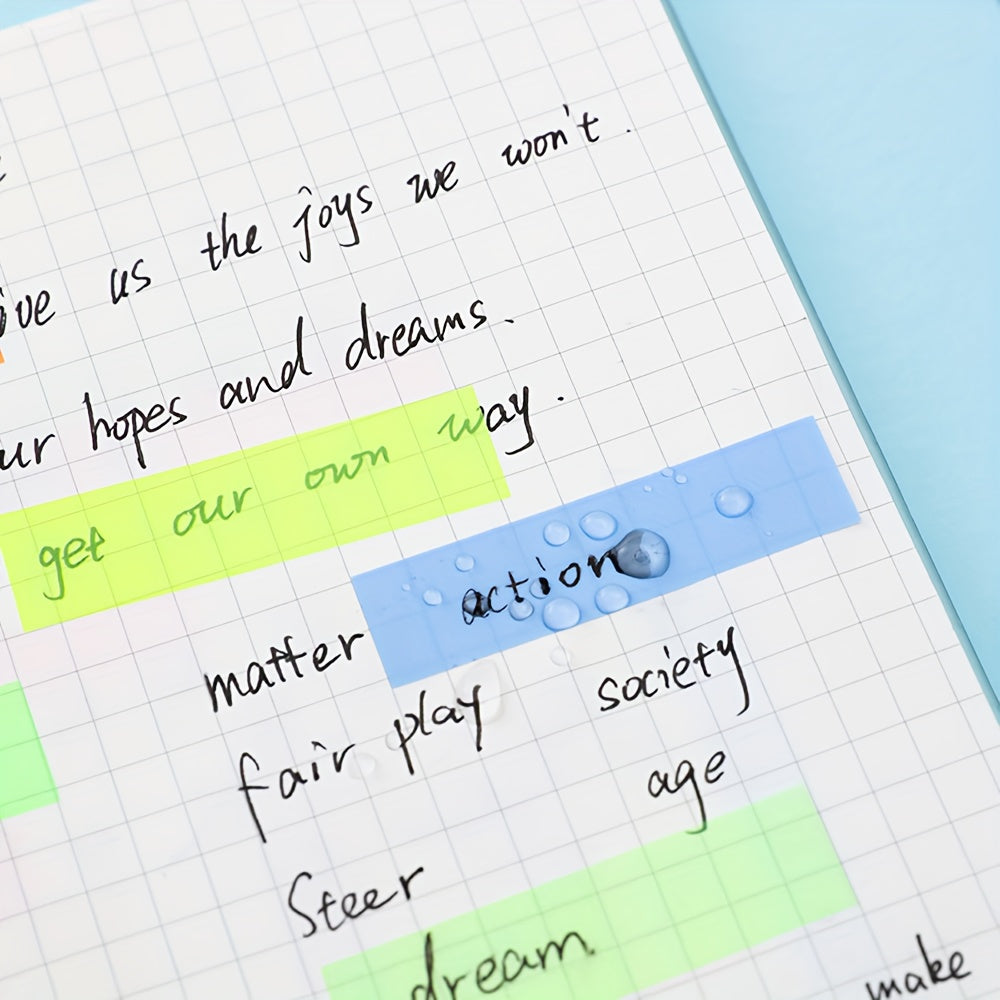 ive us the joys we won't.
ur hopes and dreams.
get our own way.
action
matter
society
fair play
age
Steer
dream.
make